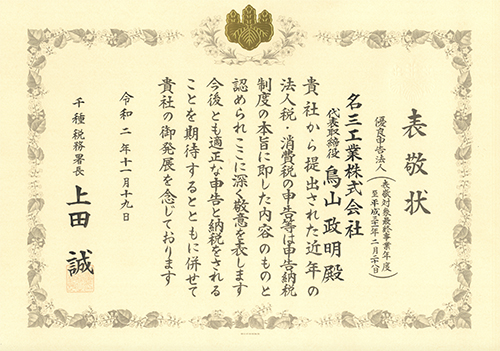 表敬状
優良申告法人
(表敬対象最終事業年度
至平成三十一年二月二十八日)
名三工業株式会社
代表取締役 鳥山政明殿
貴社から提出された近年の
法人税・消費税の申告等は申告納税
制度の本旨に即した内容のものと
認められここに深く敬意を表します
今後とも適正な申告と納税をされる
ことを期待するとともに併せて
貴社の御発展を念じております
令和二年十一月十九日
千種税務署長 上田誠